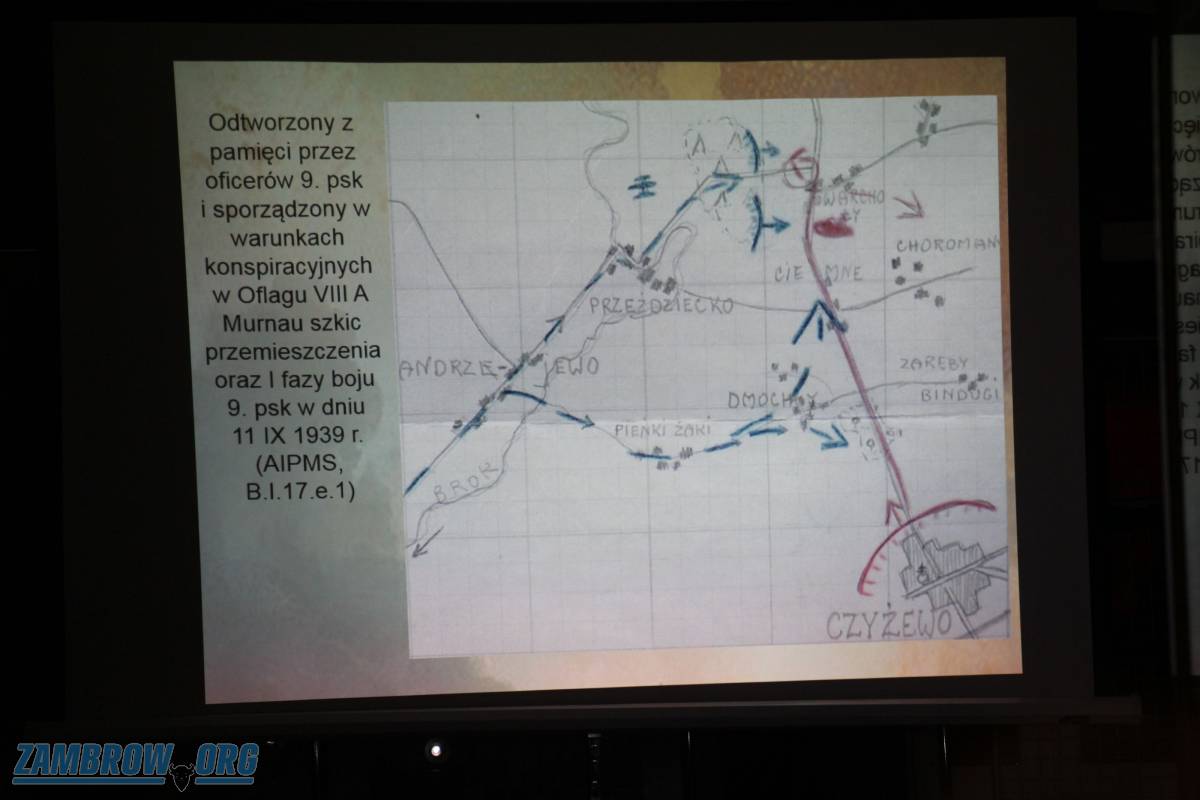 Odtworzony z
pamięci przez
oficerów 9. psk
i sporządzony w
warunkach
konspiracyjnych
w Oflagu VIII A
Murnau szkic
przemieszczenia
oraz I fazy boju
9. psk w dniu
11 IX 1939 r.
(AIPMS,
B.I.17.e.1)
SWARCHO
ŁY
CHOROMAN
CIEMNE
PRZEŹDZIECKO
ANDRZE-JEWO
ZARĘBY
BINDUGI
DMOCHY
PIEŃKI ŻAKI
BROK
CZYŻEWO
ZAMBROW.ORG